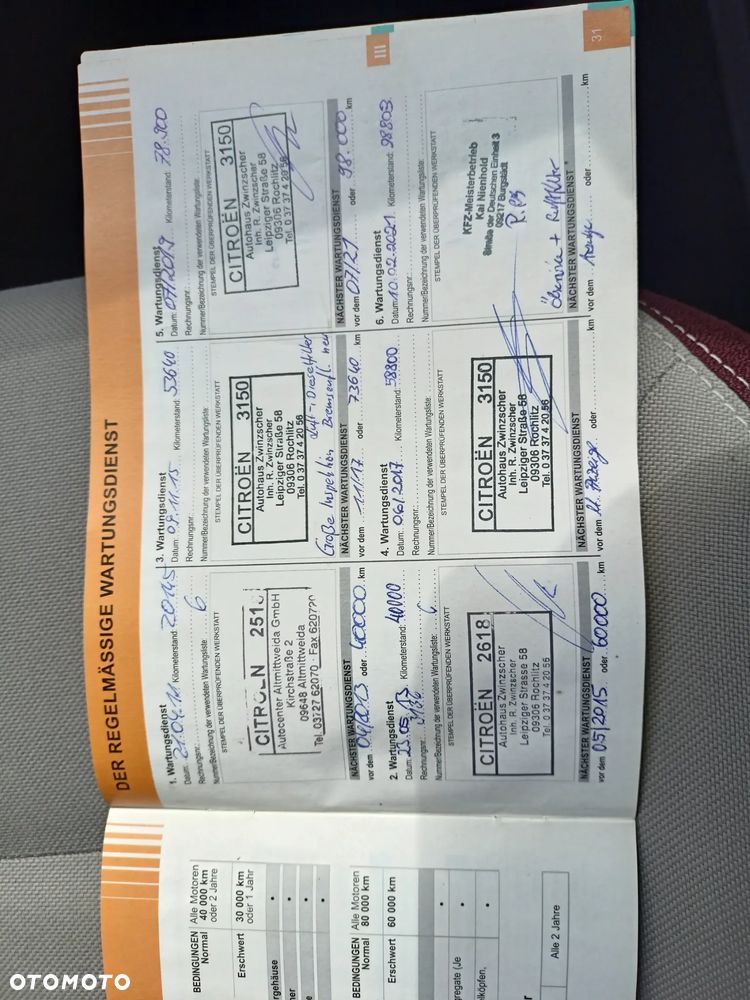 DER REGELMÄSSIGE WARTUNGSDIENST
1. Wartungsdienst
Datum: 21.04.11 Kilometerstand: 20145
Rechnungsnr.: 6
Nummer/Bezeichnung der verwendeten Wartungsliste:
STEMPEL DER ÜBERPRÜFENDEN WERKSTATT
CITROËN 251
Autocenter Altmittweida GmbH
Kirchstraße 2
09648 Altmittweida
Tel. 03727 62070 · Fax 620720
NÄCHSTER WARTUNGSDIENST
vor dem 04/2013 oder 40000 km
2. Wartungsdienst
Datum: 23.05.13 Kilometerstand: 40000
Rechnungsnr.:
Nummer/Bezeichnung der verwendeten Wartungsliste:
STEMPEL DER ÜBERPRÜFENDEN WERKSTATT
CITROËN 2618
Autohaus Zwinzscher
Inh. R. Zwinzscher
Leipziger Strasse 58
09306 Rochlitz
Tel. 0 37 37 4 20 56
NÄCHSTER WARTUNGSDIENST
vor dem 05/2015 oder 60000 km
3. Wartungsdienst
Datum: 09.11.15 Kilometerstand: 53640
Rechnungsnr.:
Nummer/Bezeichnung der verwendeten Wartungsliste:
STEMPEL DER ÜBERPRÜFENDEN WERKSTATT
CITROËN 3150
Autohaus Zwinzscher
Inh. R. Zwinzscher
Leipziger Straße 58
09306 Rochlitz
Tel. 0 37 37 4 20 56
Große Inspektion Luft-, Dieselfilter
Bremsenfl. neu
NÄCHSTER WARTUNGSDIENST
vor dem 11/17 oder 73640 km
4. Wartungsdienst
Datum: 06/2017 Kilometerstand: 58800
Rechnungsnr.:
Nummer/Bezeichnung der verwendeten Wartungsliste:
STEMPEL DER ÜBERPRÜFENDEN WERKSTATT
CITROËN 3150
Autohaus Zwinzscher
Inh. R. Zwinzscher
Leipziger Straße 58
09306 Rochlitz
Tel. 0 37 37 4 20 56
NÄCHSTER WARTUNGSDIENST
vor dem lt. Anzeige oder km
5. Wartungsdienst
Datum: 07/2019 Kilometerstand: 78.900
Rechnungsnr.:
Nummer/Bezeichnung der verwendeten Wartungsliste:
STEMPEL DER ÜBERPRÜFENDEN WERKSTATT
CITROËN 3150
Autohaus Zwinzscher
Inh. R. Zwinzscher
Leipziger Straße 58
09306 Rochlitz
Tel. 0 37 37 4 20 56
NÄCHSTER WARTUNGSDIENST
vor dem 07/21 oder 98.000 km
6. Wartungsdienst
Datum: 10.02.2021 Kilometerstand: 98803
Rechnungsnr.:
Nummer/Bezeichnung der verwendeten Wartungsliste:
STEMPEL DER ÜBERPRÜFENDEN WERKSTATT
KFZ-Meisterbetrieb
Kai Nienhold
Straße der Deutschen Einheit 3
09217 Burgstädt
Ölservice + Luftfilter
NÄCHSTER WARTUNGSDIENST
vor dem Anzeige oder km
III
31
BEDINGUNGEN
Normal
Alle Motoren
40 000 km
oder 2 Jahre
Erschwert
30 000 km
oder 1 Jahr
BEDINGUNGEN
Normal
Alle Motoren
80 000 km
Erschwert
60 000 km
Alle 2 Jahre
OTOMOTO